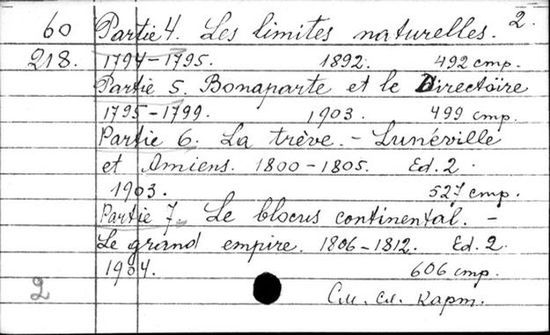 2.
60 Partie 4. Les limites naturelles.
218. 1794-1795. 1892. 492 стр.
Partie 5. Bonaparte et le Directoire
1795-1799. 1903. 499 стр.
Partie 6. La trève. - Lunéville
et Amiens. 1800-1805. Ed. 2.
1903. 527 стр.
Partie 7. Le blocus continental. -
Le grand empire. 1806-1812. Ed. 2.
1904. 606 стр.
2 См. сл. карт.